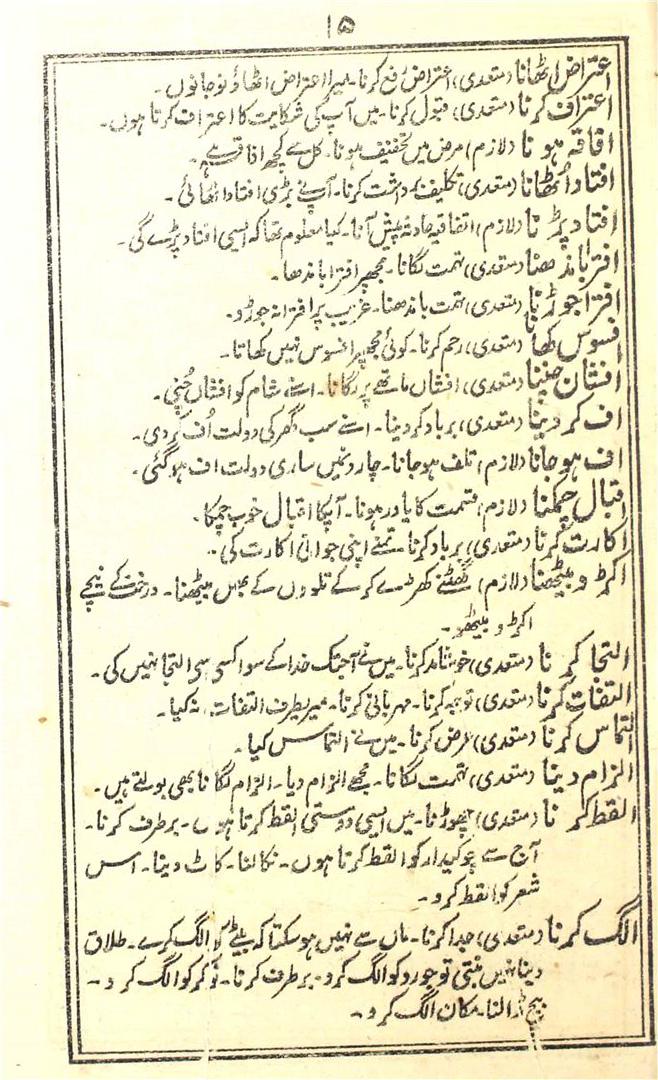 ۱۵
اعتراض اٹھانا (متعدی) اعتراض رفع کرنا۔ میرا اعتراض اٹھاؤ تو جانوں۔
اعتراف کرنا (متعدی) قبول کرنا۔ میں آپ کی شکایت کا اعتراف کرتا ہوں۔
افاقہ ہونا (لازم) مرض میں تخفیف ہونا۔ کل سے کچھ افاقہ ہے۔
افتاد اُٹھانا (متعدی) تکلیف برداشت کرنا۔ آپنے بڑی افتاد اٹھائی۔
افتاد پڑنا (لازم) اتفاقیہ حادثہ پیش آنا۔ کیا معلوم تھا کہ ایسی افتاد پڑے گی۔
افترا باندھنا (متعدی) تہمت لگانا۔ مجھپر افترا باندھا۔
افترا جوڑنا (متعدی) تہمت باندھنا۔ غریب پر افترا نہ جوڑو۔
افسوس کھانا (متعدی) رحم کرنا۔ کوئی مجھپر افسوس نہیں کھاتا۔
افشان چننا (متعدی) افشاں ماتھے پر لگانا۔ اسنے شام کو افشاں چُنی۔
اف کر دینا (متعدی) برباد کر دینا۔ اسنے سب گھر کی دولت اُف کر دی۔
اف ہو جانا (لازم) تلف ہو جانا۔ چار دنمیں ساری دولت اف ہو گئی۔
اقبال چمکنا (لازم) قسمت کا یاور ہونا۔ آپکا اقبال خوب چمکا۔
اکارت کرنا (متعدی) برباد کرنا۔ تمنے اپنی جوانی اکارت کی۔
اکڑو بیٹھنا (لازم) گھٹنے کھڑے کر کے تلووں کے بھل بیٹھنا۔ درخت کے نیچے
اکڑو بیٹھو۔
التجا کرنا (متعدی) خوشامد کرنا۔ میں نے آجتک خدا کے سوا کسی سی التجا نہیں کی۔
التفات کرنا (متعدی) توجہ کرنا۔ مہربانی کرنا۔ میریطرف التفات نہ کیا۔
التماس کرنا (متعدی) عرض کرنا۔ میں نے التماس کیا۔
الزام دینا (متعدی) تہمت لگانا۔ مجھے الزام دیا۔ الزام لگانا بھی بولتے ہیں۔
القط کرنا (متعدی) چھوڑنا۔ میں ایسی دوستی القط کرتا ہوں۔ برطرف کرنا۔
آج سے چوکیدار کو القط کرتا ہوں۔ نکالنا۔ کاٹ دینا۔ اس
شعر کو القط کرو۔
الگ کرنا (متعدی) جدا کرنا۔ ماں سے نہیں ہو سکتا کہ بیٹے کو الگ کرے۔ طلاق
دینا۔ نہیں بنتی تو جورو کو الگ کرو۔ برطرف کرنا۔ نوکر کو الگ کرو۔
بیچ ڈالنا۔ مکان الگ کرو۔